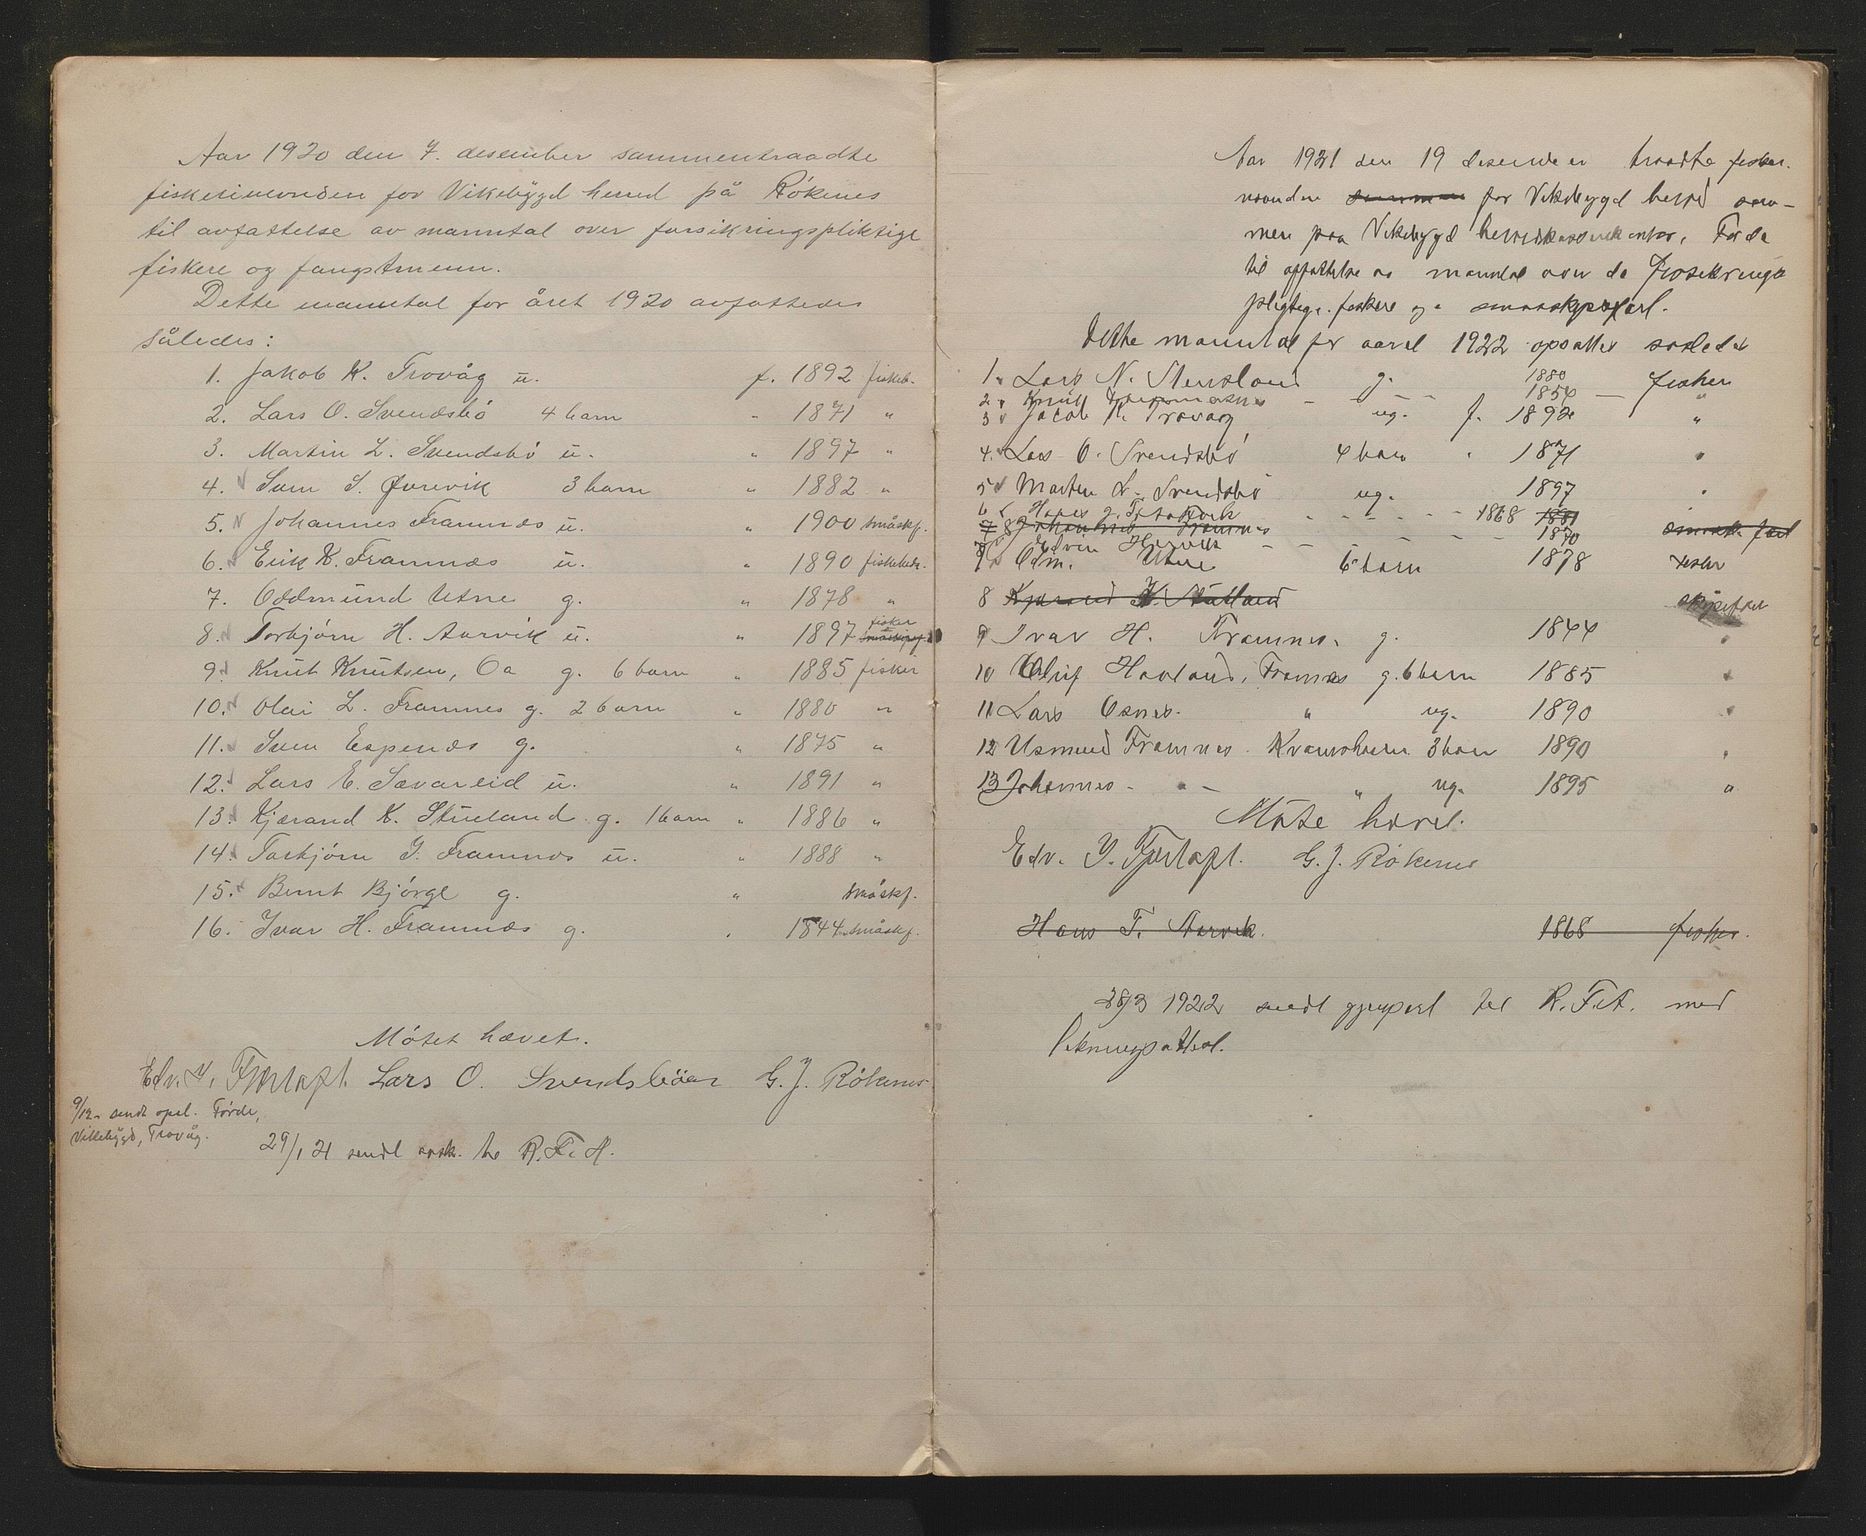 Aar 1920 den 7. desember sammentraadte
fiskerinevnden for Vikebygd herred på Rökenes
til avfattelse av manntal over forsikringspliktige
fiskere og fangstmenn.
Dette manntal for året 1920 avfattedes
således:
1. Jakob K. Trovåg u. f. 1892 fiskeb.
2. Lars O. Svendsbö 4 barn " 1871 "
3. Martin L. Svendsbö u. " 1897 "
4. Sven S. Øvrevik 3 barn " 1882 "
5. Johannes Framnæs u. " 1900 småskf.
6. Erik K. Framnæs u. " 1890 fiskeb.
7. Oddmund Utne g. " 1878 "
8. Torbjörn H. Aarvik u. " 1897 fisker
9. Knut Knutsen, Oa g. 6 barn " 1885 fisker
10. Olai L. Framnes g. 2 barn " 1880 "
11. Sven Espenæs g. " 1875 "
12. Lars E. Sævareid u. " 1891 "
13. Kjærand K. Stueland g. 1 barn " 1886 "
14. Torbjörn I. Framnæs u. " 1888 "
15. Bernt Bjórge g. " småskf.
16. Ivar H. Framnæs g. " 1844 småskf.
Mötet hævet.
Edv. Y. Fjortoft. Lars O. Svendsböer G. J. Rökenes
9/12 sendt opsl. Förde,
Vikebygd, Trovåg.
29/1 21 sendt til R.F.A.
Aar 1921 den 19 desember traadte fisker-
nevnden for Vikebygd herred sam-
men paa Vikebygd Förde
til opfattelse av manntal over de forsekrings
pligtige fiskere og smaaskpsfart.
Dette manntal for aaret 1922 opsattes saaledes
1. Lars N. Stensland g. 1880 fisker
2. Knut 1854 "
3 Jacob K. Trovaag ug. f. 1892 "
4. Lars O. Svendsbö 4 barn " 1871 "
5 Marten L. Svendsbö ug. 1897 "
6 Hans 1868
7 8 Johannes Framnes
Edvin 1870
Odm. Utne 6 barn 1878 fisker
8 Kjærand K. Stutland
9 Ivar H. Framnes. g. 1844 "
10 Oluf Havland, Framnes g. 6 barn 1885 "
11 Lars Osnes. " ug. 1890 "
12 Framnes. 3 barn 1890 "
13 Johannes - " - " ug. 1895 "
Möte hævet.
Edv. Y. Fjortoft. G. J. Rökenes
Hans T. Aarvik. 1868 fisker.
28/3 1922 sendt til R.F.A. med